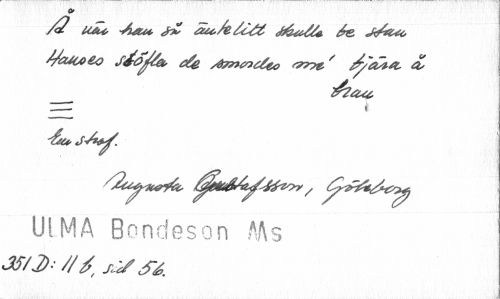 Å när han så äntelitt skulle be stan
Hanses stöfla de smordes mé' tjära å
bran
En strof.
Augusta Gustafsson, Göteborg
ULMA Bondeson Ms
351 D: 11 b, sid 56.